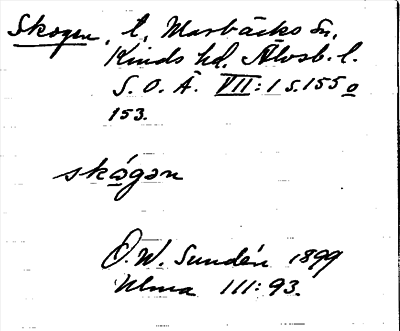 Skogen, t, Marbäcks sn,
Kinds hd. Älvsb. l.
S. O. Ä. VII: 1 s. 155 o
153.
skógən
O. W. Sundén 1899
Ulma 111: 93.